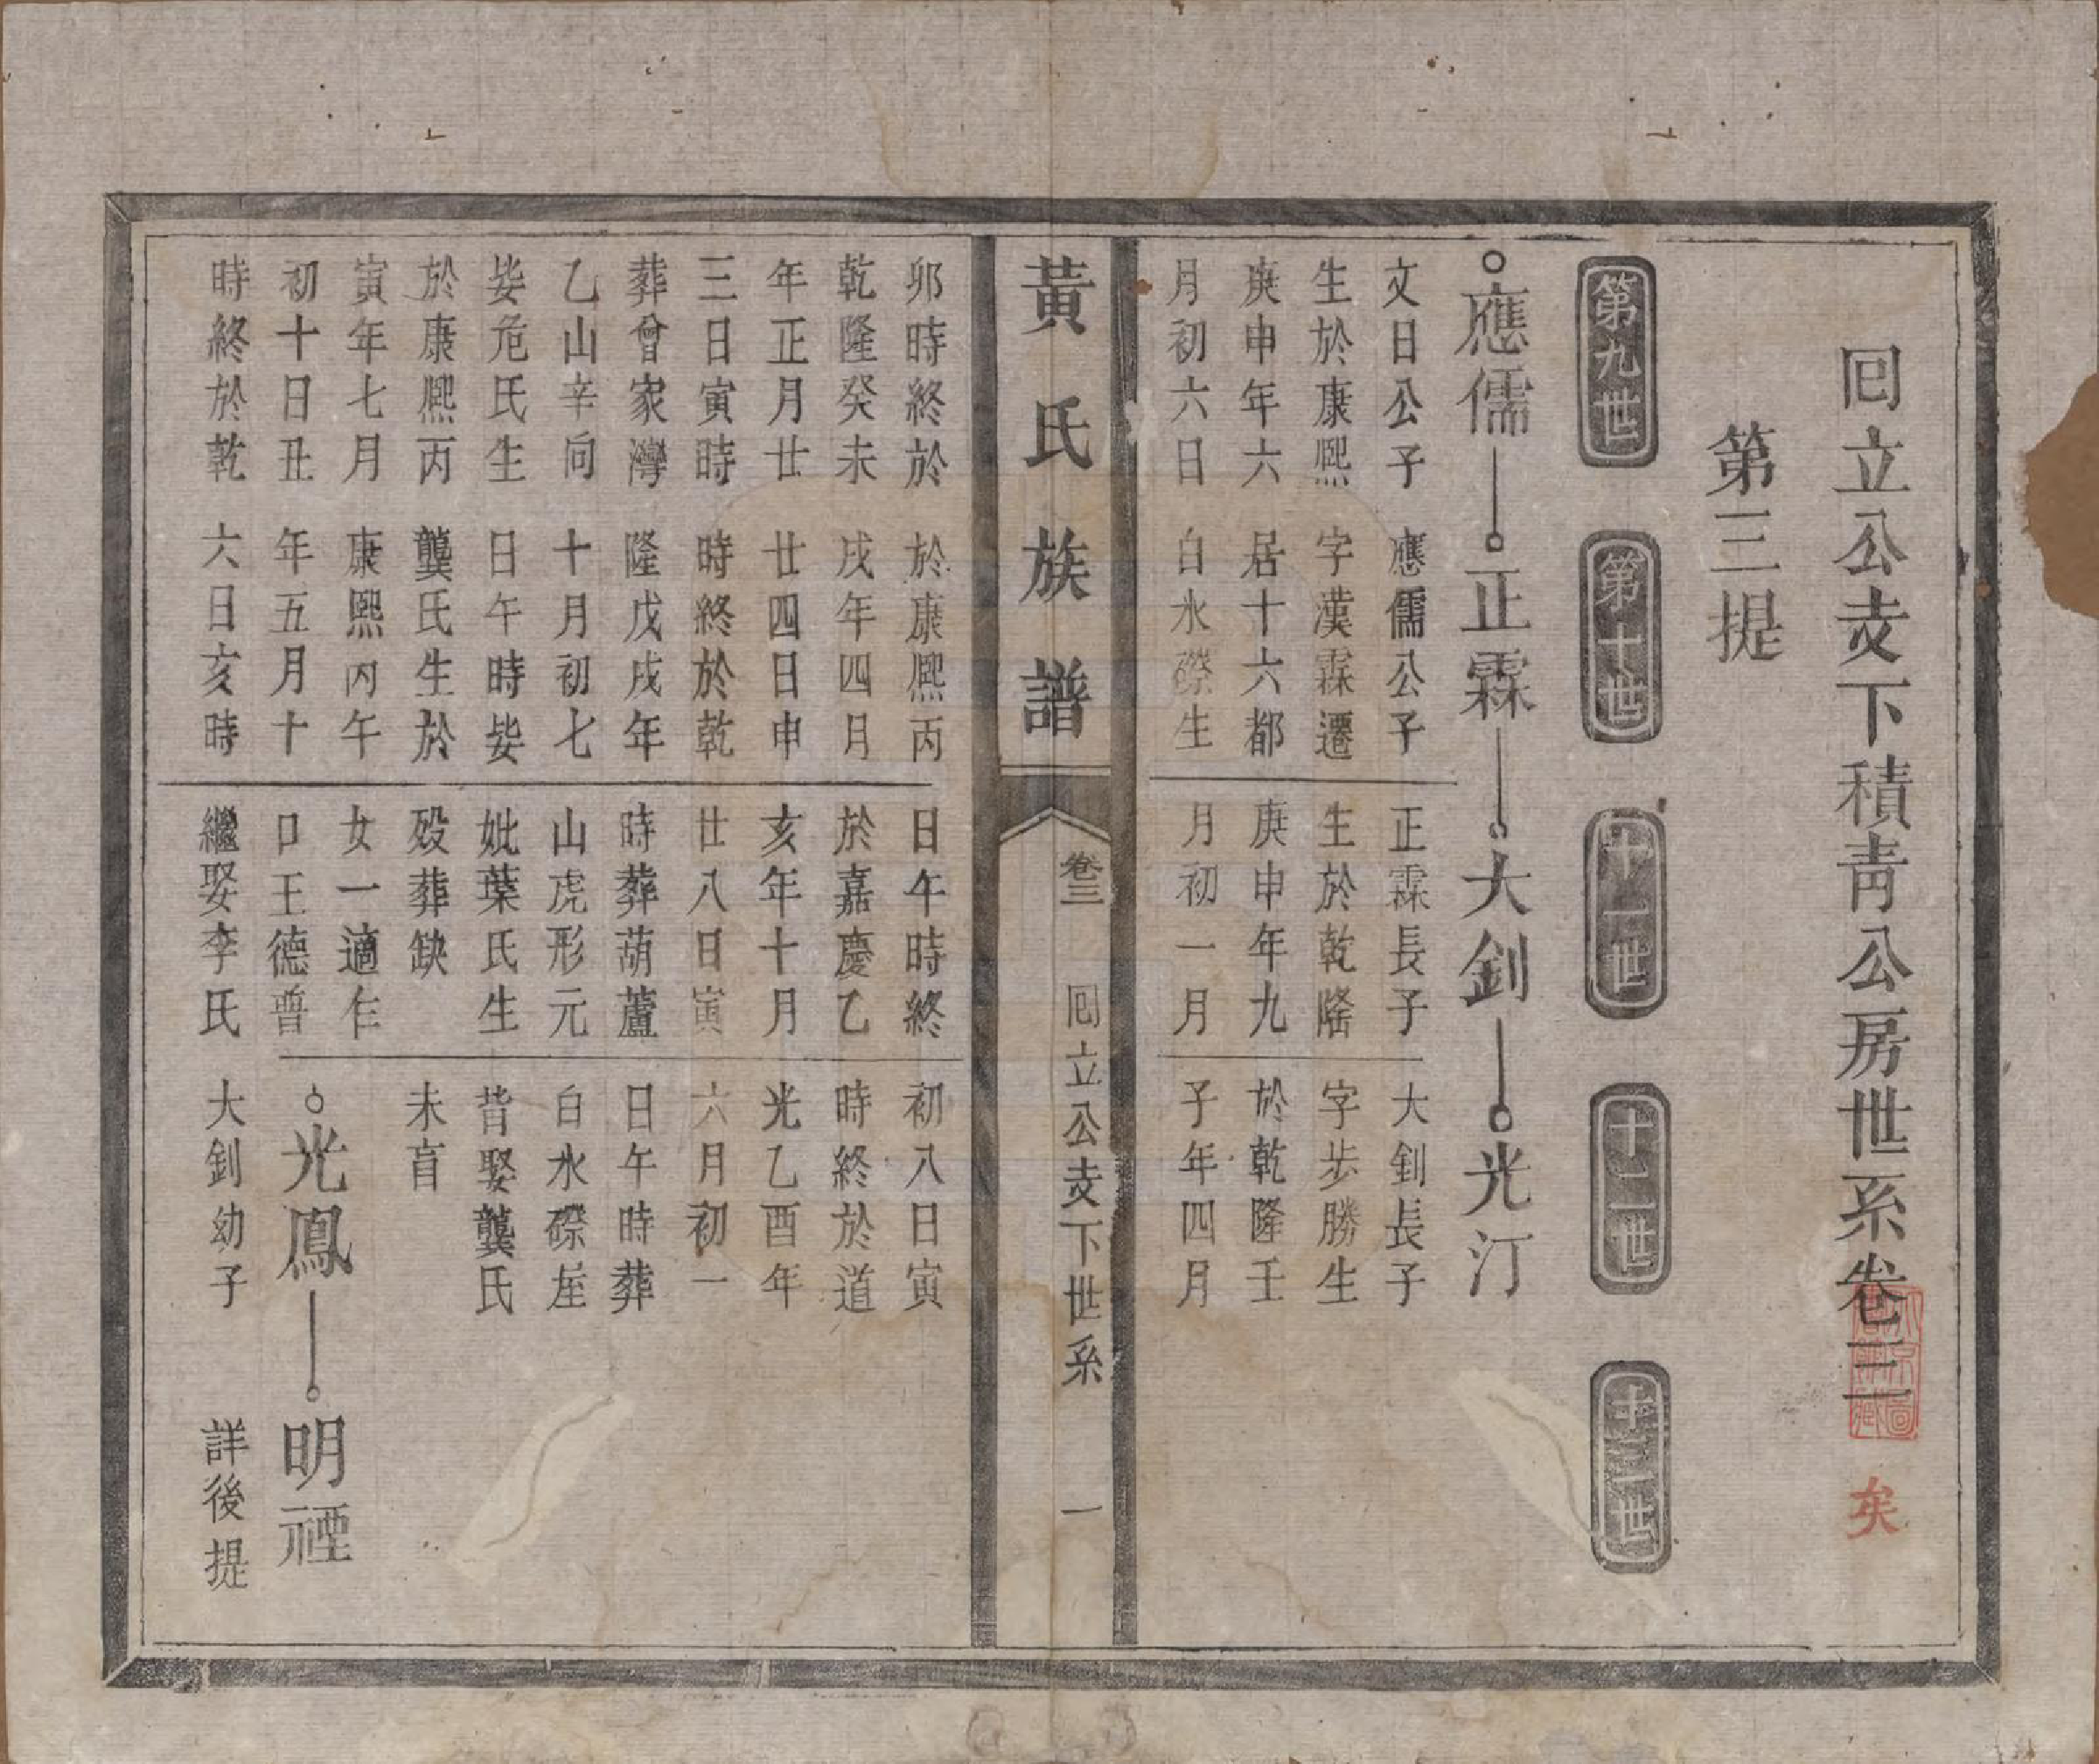 囘立公支下積青公房世系卷三
矣
第三提
第九世
第十世
十一世
十二世
十三世
應儒
正霖
大釗
光汀
文日公子
生於康熙
庚申年六
月初六日
卯時終於
乾隆癸未
年正月廿
三日寅時
葬曾家灣
乙山辛向
娶危氏生
於康熙丙
寅年七月
初十日丑
時終於乾
應儒公子
字漢霖遷
居十六都
白水磜生
於康熙丙
戌年四月
廿四日申
時終於乾
隆戊戌年
十月初七
日午時娶
龔氏生於
康熙丙午
年五月十
六日亥時
正霖長子
生於乾隆
庚申年九
月初一月
日午時終
於嘉慶乙
亥年十月
廿八日寅
時葬葫蘆
山虎形元
妣葉氏生
殁葬缺
女一適仁
口王德普
繼娶李氏
大釗長子
字步勝生
於乾隆壬
子年四月
初八日寅
時終於道
光乙酉年
六月初一
日午時葬
白水磜座
昔娶龔氏
未盲
光鳳
明禋
大釗幼子
詳後提
黃氏族譜
卷三
囘立公支下世系
一